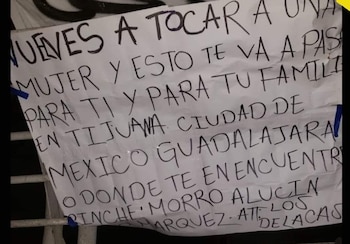 VUELVES A TOCAR A UNA
MUJER Y ESTO TE VA A PAS
PARA TI Y PARA TU FAMILI
EN TIJUANA CIUDAD DE
MEXICO GUADALAJARA
O DONDE TE EN ENCUENTR
PINCHE MORRO ALUCIN
MARQUEZ. ATT. LOS
DE LA CAS